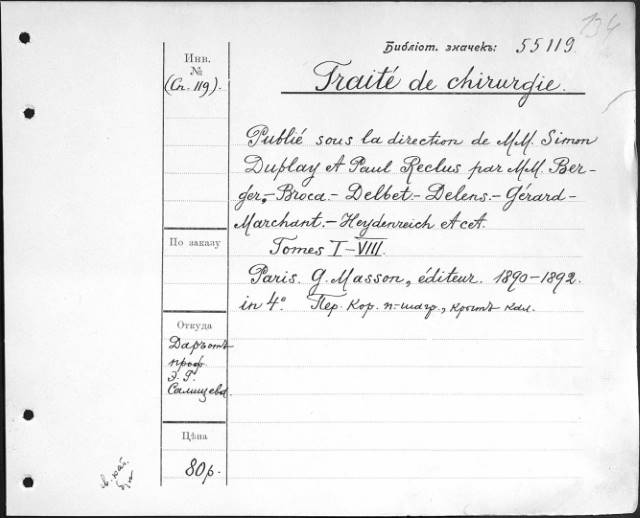 134
Библіот. значекъ: 55119
Инв.
№
(Сп. 119).
Traité de chirurgie.
Publié sous la direction de MM. Simon
Duplay et Paul Reclus par MM. Ber-
ger,- Broca.- Delbet.- Delens.- Gérard-
Marchant.- Heydenreich etc.
Tomes I-VIII.
Paris. G. Masson, éditeur. 1890-1892.
in 4°. Пер. кор. п.-шагр., крыт. кал.
По заказу
Откуда
Даръ отъ
проф.
Э. Г.
Салищева.
Цѣна
80 р.